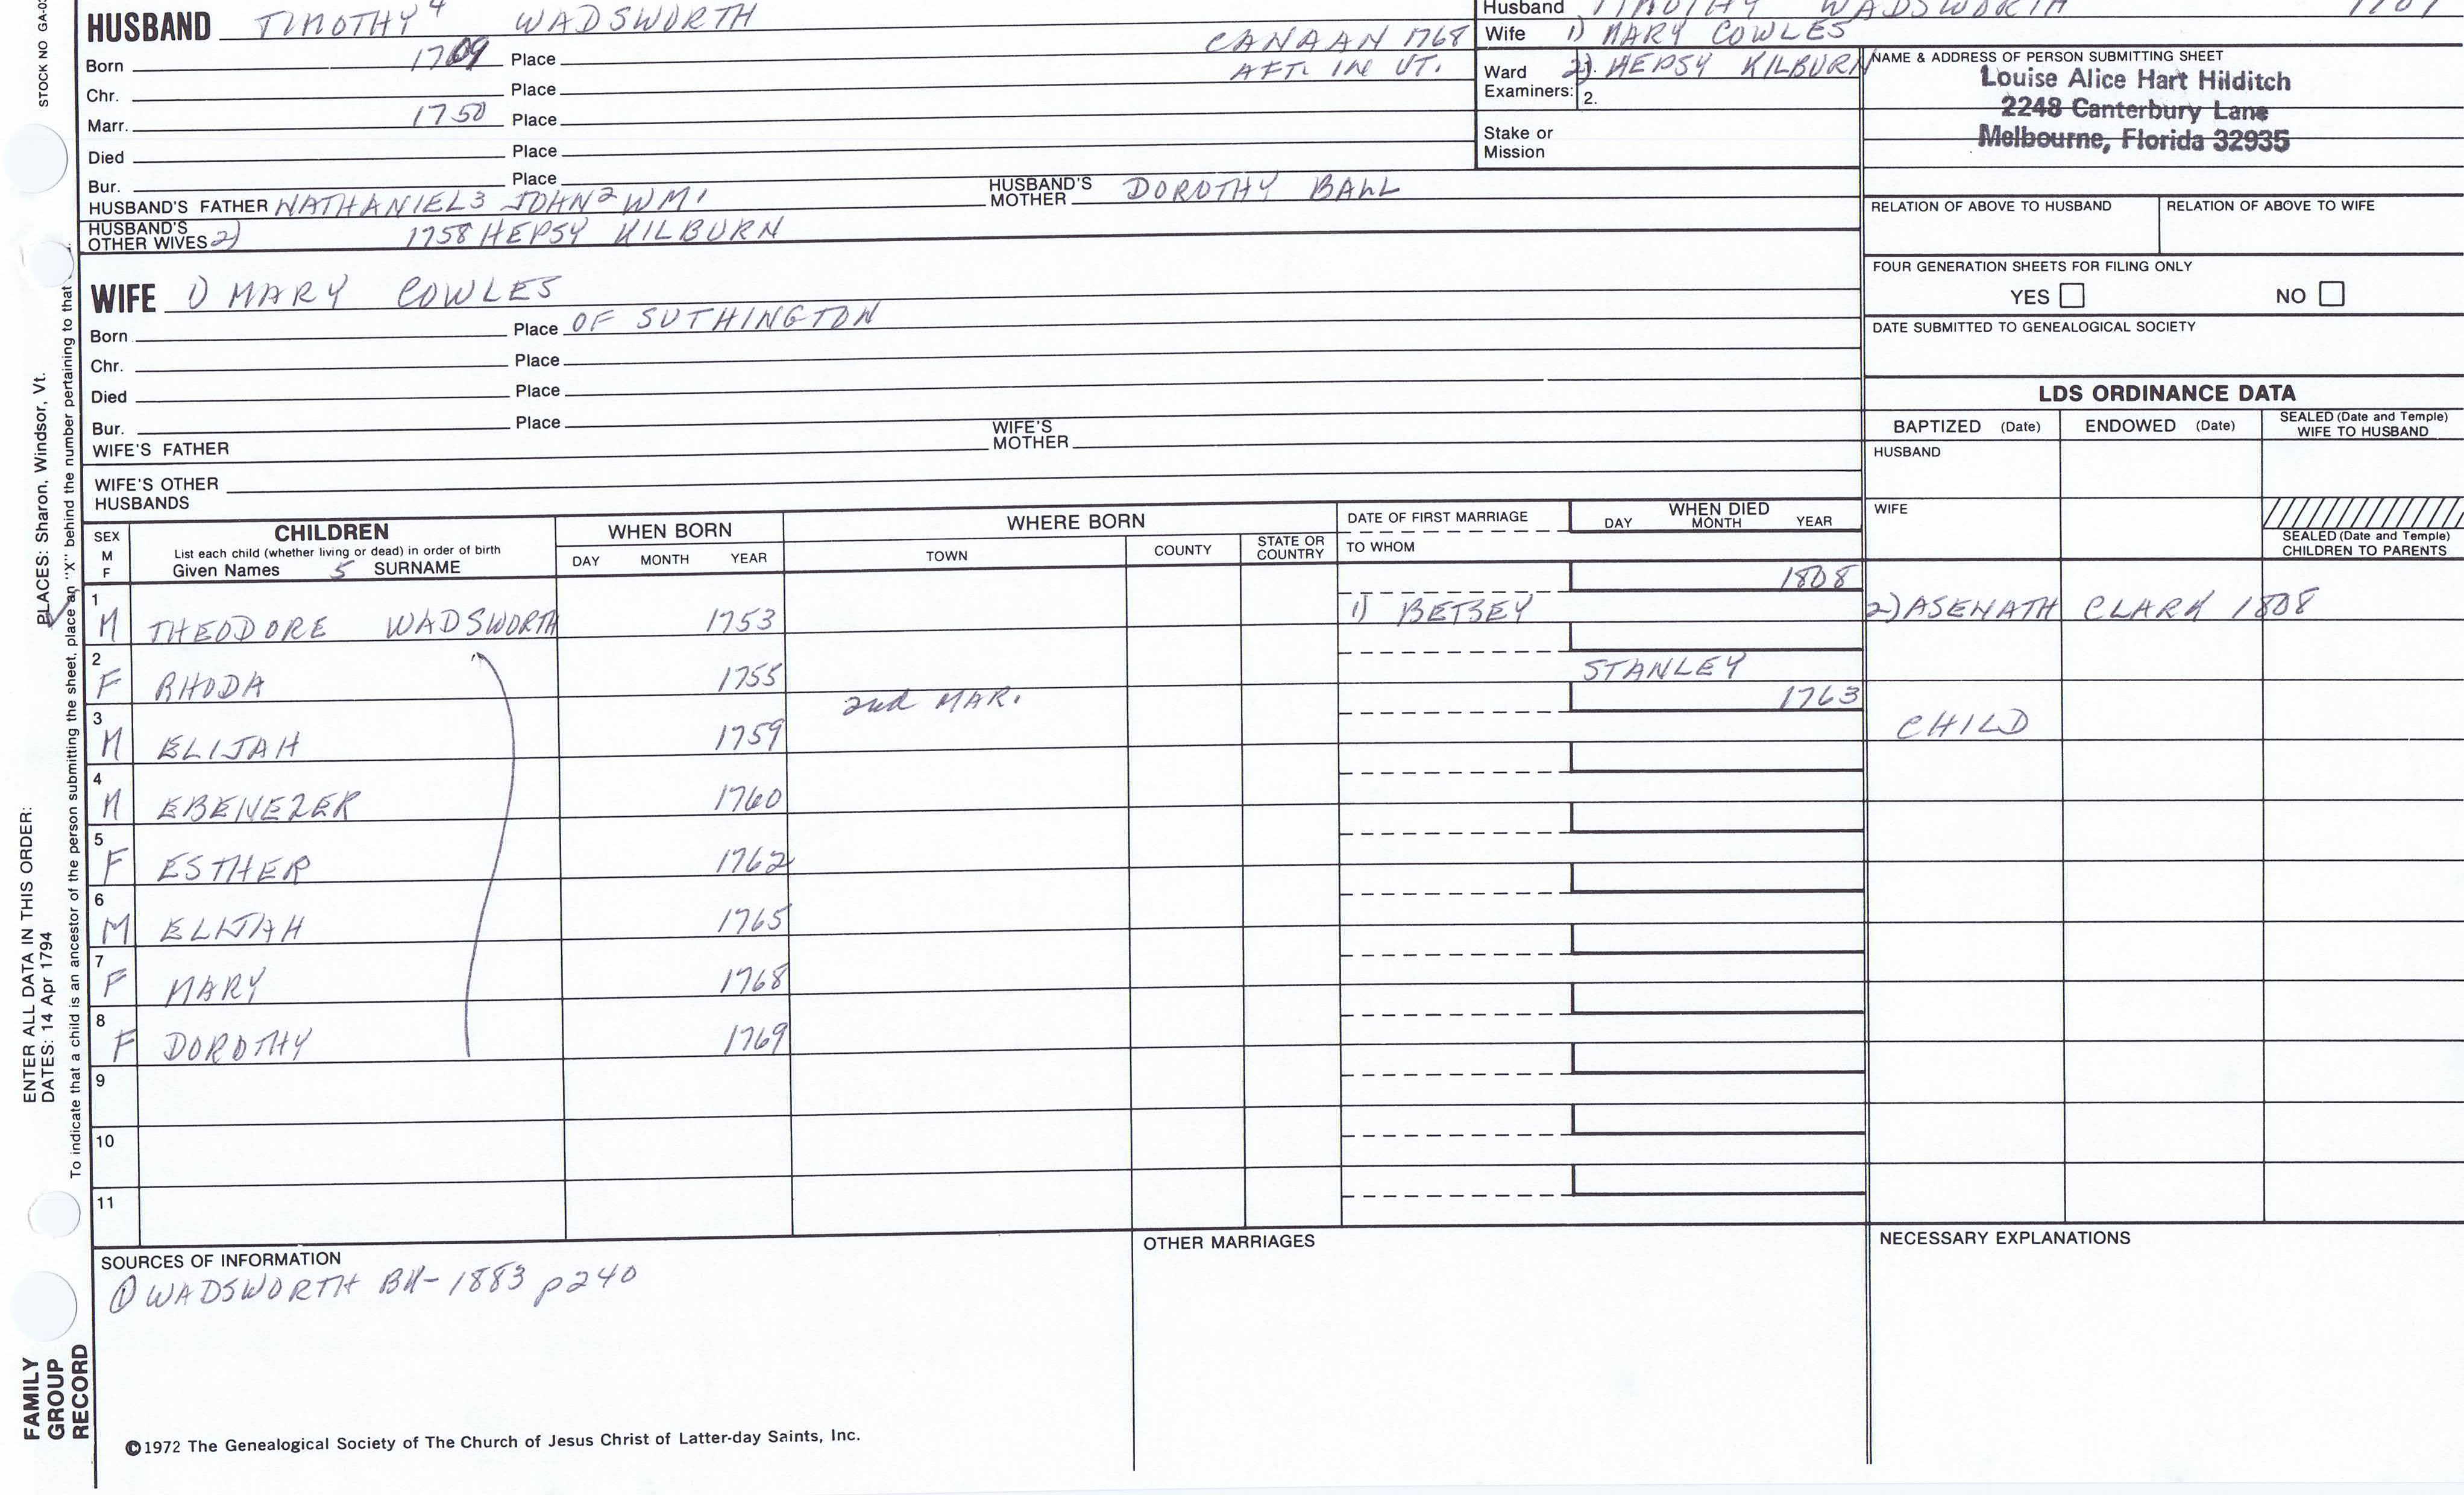 STOCK NO GA-0
HUSBAND TIMOTHY 4 WADSWORTH
Born 1709 Place CANAAN 1768
AFT. IN VT.
Chr. Place
Marr. 1750 Place
Died Place
Bur. Place
HUSBAND'S FATHER NATHANIEL3 JOHN2 WM1 HUSBAND'S MOTHER DOROTHY BALL
HUSBAND'S OTHER WIVES 2) 1758 HEPSY KILBURN
Husband TIMOTHY WADSWORTH
Wife 1) MARY COWLES
Ward Examiners: 2). HEPSY KILBURN
2.
Stake or Mission
NAME & ADDRESS OF PERSON SUBMITTING SHEET
Louise Alice Hart Hilditch
2248 Canterbury Lane
Melbourne, Florida 32935
RELATION OF ABOVE TO HUSBAND RELATION OF ABOVE TO WIFE
FOUR GENERATION SHEETS FOR FILING ONLY
YES NO
DATE SUBMITTED TO GENEALOGICAL SOCIETY
WIFE 1) MARY COWLES
Born Place OF SUTHINGTON
Chr. Place
Died Place
Bur. Place
WIFE'S FATHER WIFE'S MOTHER
WIFE'S OTHER HUSBANDS
LDS ORDINANCE DATA
BAPTIZED (Date) ENDOWED (Date) SEALED (Date and Temple) WIFE TO HUSBAND
HUSBAND
WIFE
SEALED (Date and Temple) CHILDREN TO PARENTS
SEX M F
CHILDREN
List each child (whether living or dead) in order of birth
Given Names 5 SURNAME
WHEN BORN
DAY MONTH YEAR
WHERE BORN
TOWN COUNTY STATE OR COUNTRY
DATE OF FIRST MARRIAGE
TO WHOM
WHEN DIED
DAY MONTH YEAR
1 M THEODORE WADSWORTH 1753 1) BETSEY 1808 2) ASENATH CLARK 1808
2 F RHODA 1755 STANLEY
2nd MAR.
3 M ELIJAH 1759 1763 CHILD
4 M EBENEZER 1760
5 F ESTHER 1762
6 M ELIJAH 1765
7 F MARY 1768
8 F DOROTHY 1769
9
10
11
SOURCES OF INFORMATION
① WADSWORTH BK- 1883 p240
OTHER MARRIAGES
NECESSARY EXPLANATIONS
©1972 The Genealogical Society of The Church of Jesus Christ of Latter-day Saints, Inc.
FAMILY GROUP RECORD
ENTER ALL DATA IN THIS ORDER:
DATES: 14 Apr 1794
PLACES: Sharon, Windsor, Vt.
To indicate that a child is an ancestor of the person submitting the sheet, place an "X" behind the number pertaining to that